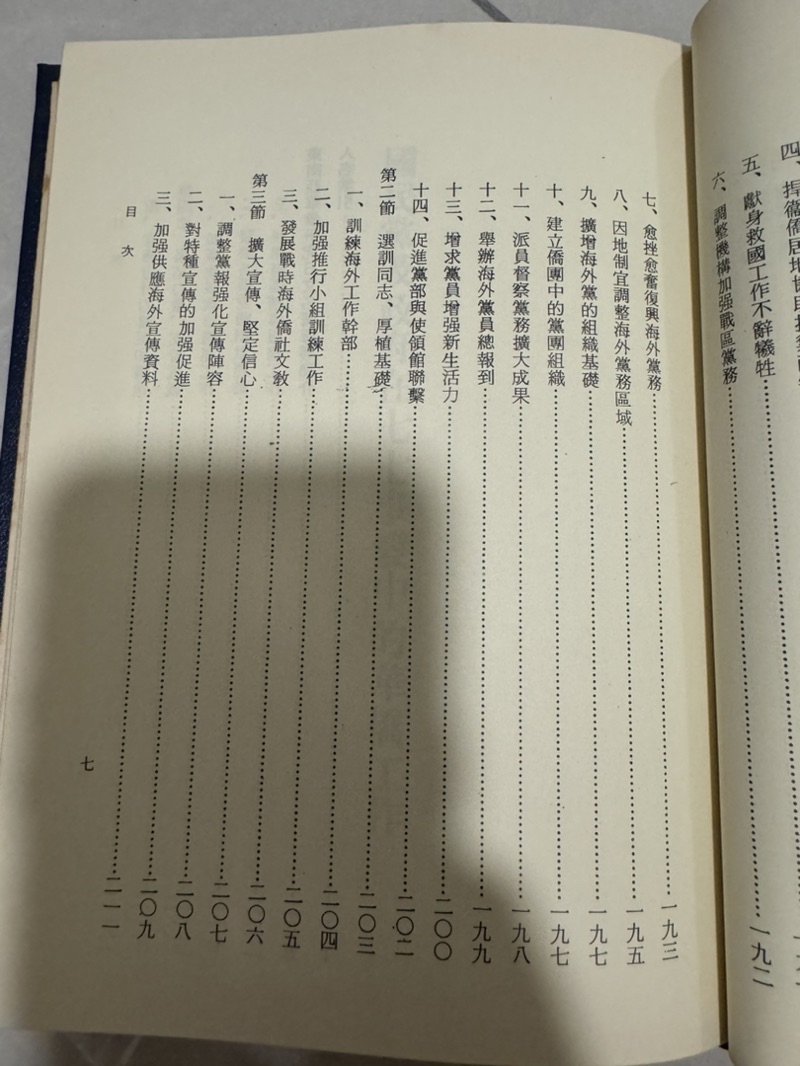 四、捍衞僑居地協助
五、獻身救國工作不辭犧牲
六、調整機構加强戰區黨務……一九二
七、愈挫愈奮復興海外黨務……一九三
八、因地制宜調整海外黨務區域……一九五
九、擴增海外黨的組織基礎……一九七
十、建立僑團中的黨團組織……一九七
十一、派員督察黨務擴大成果……一九八
十二、舉辦海外黨員總報到……一九九
十三、增求黨員增强新生活力……二〇〇
十四、促進黨部與使領館聯繫……二〇二
第二節 選訓同志、厚植基礎……二〇三
一、訓練海外工作幹部……二〇四
二、加强推行小組訓練工作……二〇五
三、發展戰時海外僑社文教……二〇六
第三節 擴大宣傳、堅定信心……二〇七
一、調整黨報强化宣傳陣容……二〇八
二、對特種宣傳的加强促進……二〇九
三、加强供應海外宣傳資料……二一一
目 次
七